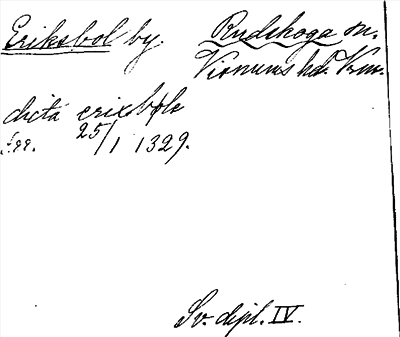 Eriksbol by. Rudskoga sn.
Visnums hd. Vrm.
dicta erixbole
25/1 1329.
Sv. dipl. IV.